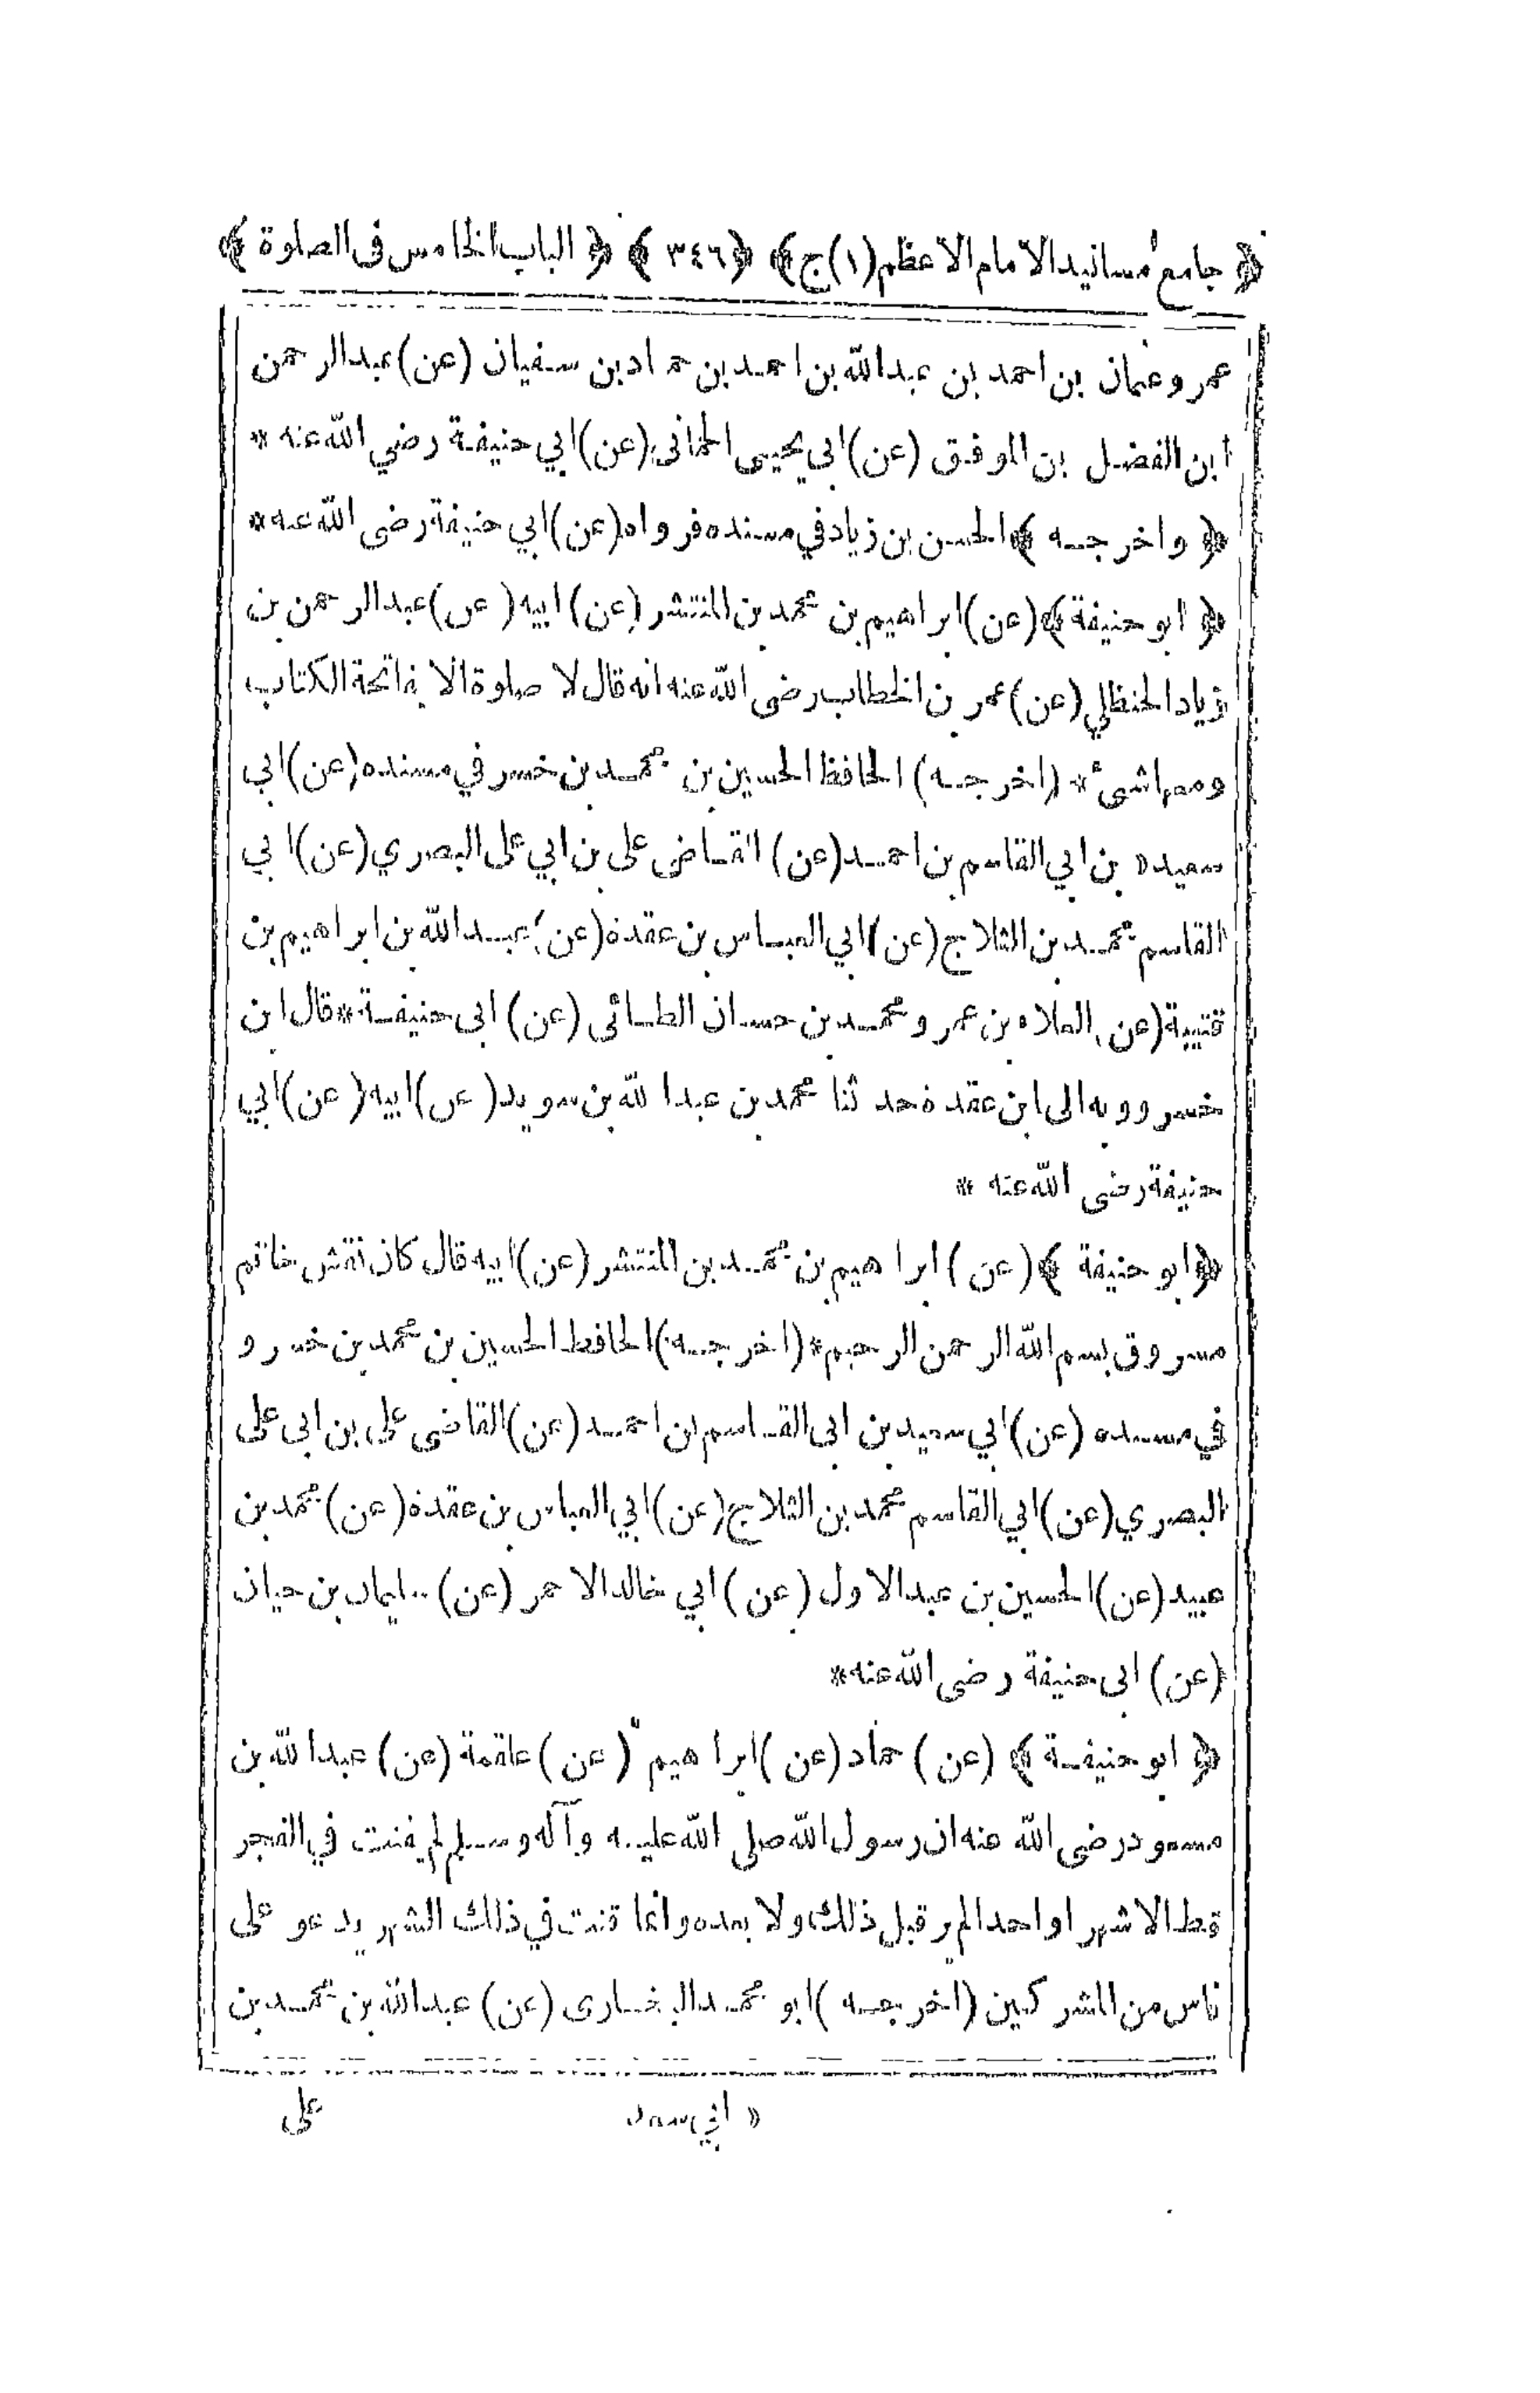 ﴿ جامع مسانيد الامام الاعظم (١) ج ﴾ ﴿ ٣٤٦ ﴾ ﴿ الباب الخامس فى الصلوة ﴾
عمر وعثمان بن احمد بن عبدالله بن احمد بن حماد بن سفيان (عن) عبدالرحمن
ابن الفضل بن الموفق (عن) ابى يحيى الحمانى (عن) ابي حنيفة رضي الله عنه *
﴿ واخرجه ﴾ الحسن بن زياد في مسنده فرواه (عن) ابي حنيفة رضى الله عنه *
﴿ ابو حنيفة ﴾ (عن) ابراهيم بن محمد بن المنتشر (عن) ابيه (عن) عبدالرحمن بن
زياد الحنظلي (عن) عمر بن الخطاب رضى الله عنه انه قال لا صلوة الا بفاتحة الكتاب
ومعها شئ * (اخرجه) الحافظ الحسين بن محمد بن خسر في مسنده (عن) ابي
سعيد « بن ابي القاسم بن احمد (عن) القاضى على بن ابي على البصري (عن) ابي
القاسم محمد بن الثلاج (عن) ابي العباس بن عقدة (عن) عبدالله بن ابراهيم بن
قتيبة (عن) العلاء بن عمر ومحمد بن حسان الطائى (عن) ابى حنيفة * قال ابن
خسرو وبه الى ابن عقدة حدثنا محمد بن عبدالله بن سويد (عن) ابيه (عن) ابي
حنيفة رضى الله عنه *
﴿ ابو حنيفة ﴾ (عن) ابراهيم بن محمد بن المنتشر (عن) ابيه قال كان نقش خاتم
مسروق بسم الله الرحمن الرحيم * (اخرجه) الحافظ الحسين بن محمد بن خسرو
في مسنده (عن) ابي سعيد بن ابى القاسم بن احمد (عن) القاضى على بن ابى على
البصري (عن) ابي القاسم محمد بن الثلاج (عن) ابي العباس بن عقدة (عن) محمد بن
عبيد (عن) الحسين بن عبدالاول (عن) ابي خالد الاحمر (عن) سليمان بن حيان
(عن) ابى حنيفة رضى الله عنه *
﴿ ابو حنيفة ﴾ (عن) حماد (عن) ابراهيم (عن) علقمة (عن) عبدالله بن
مسعود رضى الله عنه ان رسول الله صلى الله عليه وآله وسلم لم يقنت في الفجر
قط الا شهرا واحدا لم ير قبل ذلك ولا بعده وانما قنت في ذلك الشهر يدعو على
ناس من المشركين (اخرجه) ابو محمد البخارى (عن) عبدالله بن محمد بن
« ابي سعد
على